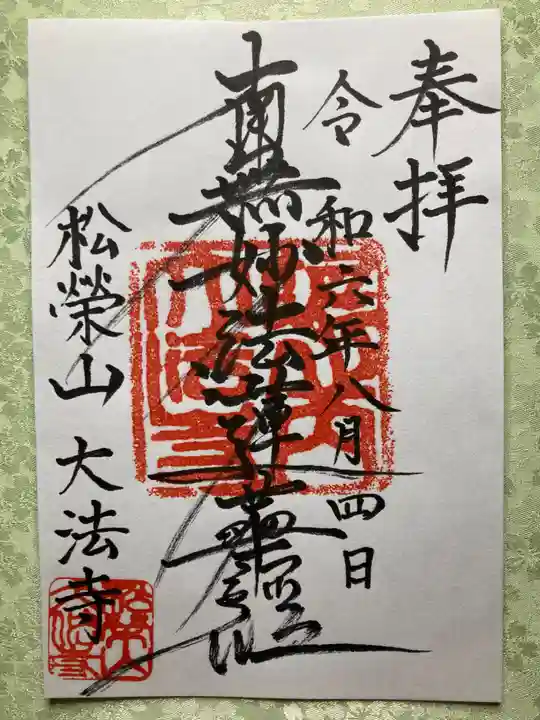 奉拝
令和六年八月四日
南無妙法蓮華経
松榮山 大法寺